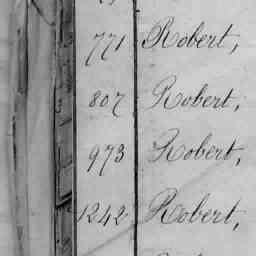 771 Robert,
807 Robert,
973 Robert,
1242 Robert,